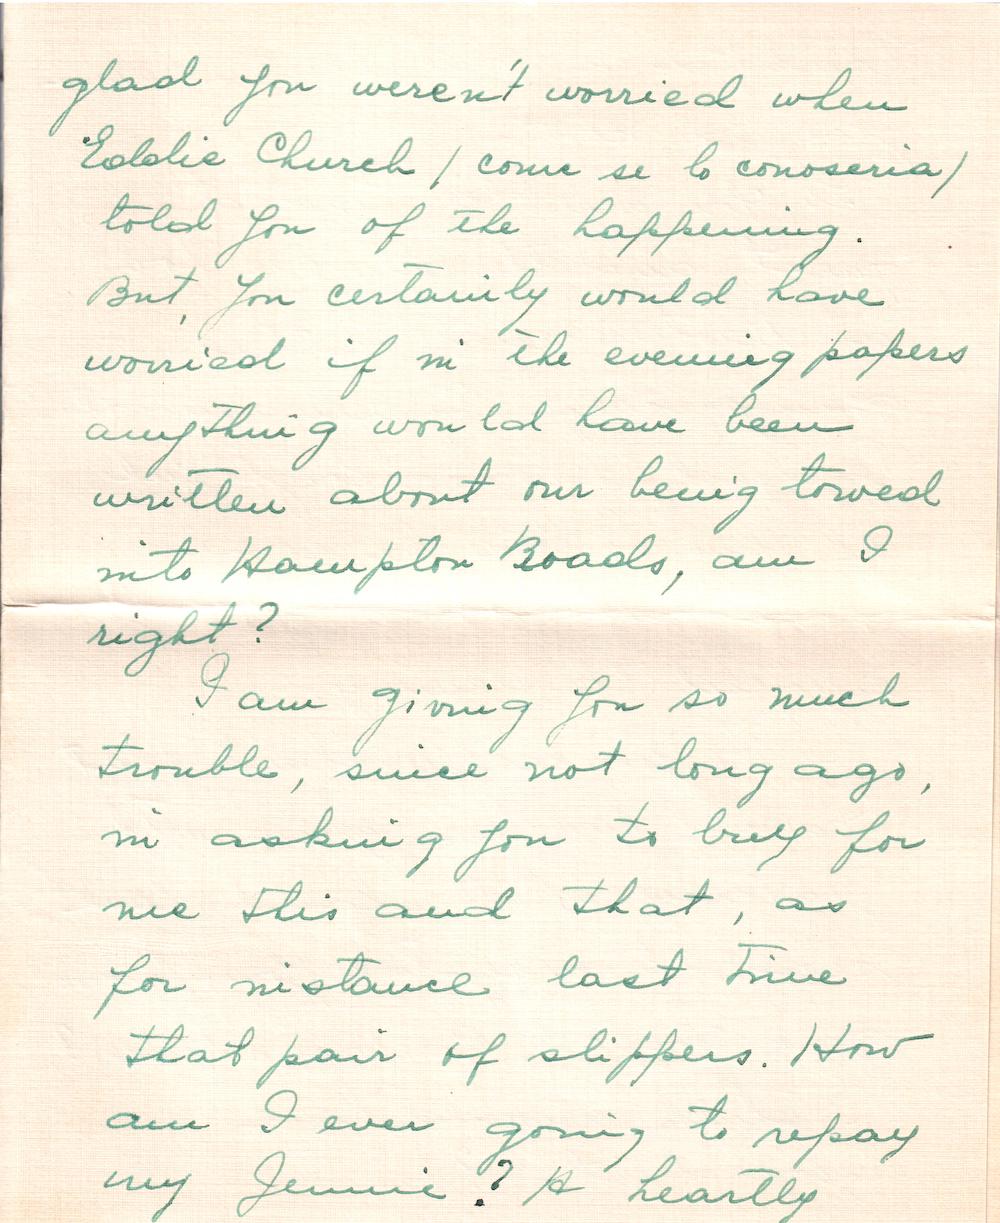 glad you weren't worried when
Eddie Church / come se lo conoseria /
told you of the happening.
But, you certainly would have
worried if in the evening papers
anything would have been
written about our being towed
into Hampton Roads, am I
right?
I am giving you so much
trouble, since not long ago,
in asking you to buy for
me this and that, as
for instance last time
that pair of slippers. How
am I ever going to repay
my Jennie? A heartly